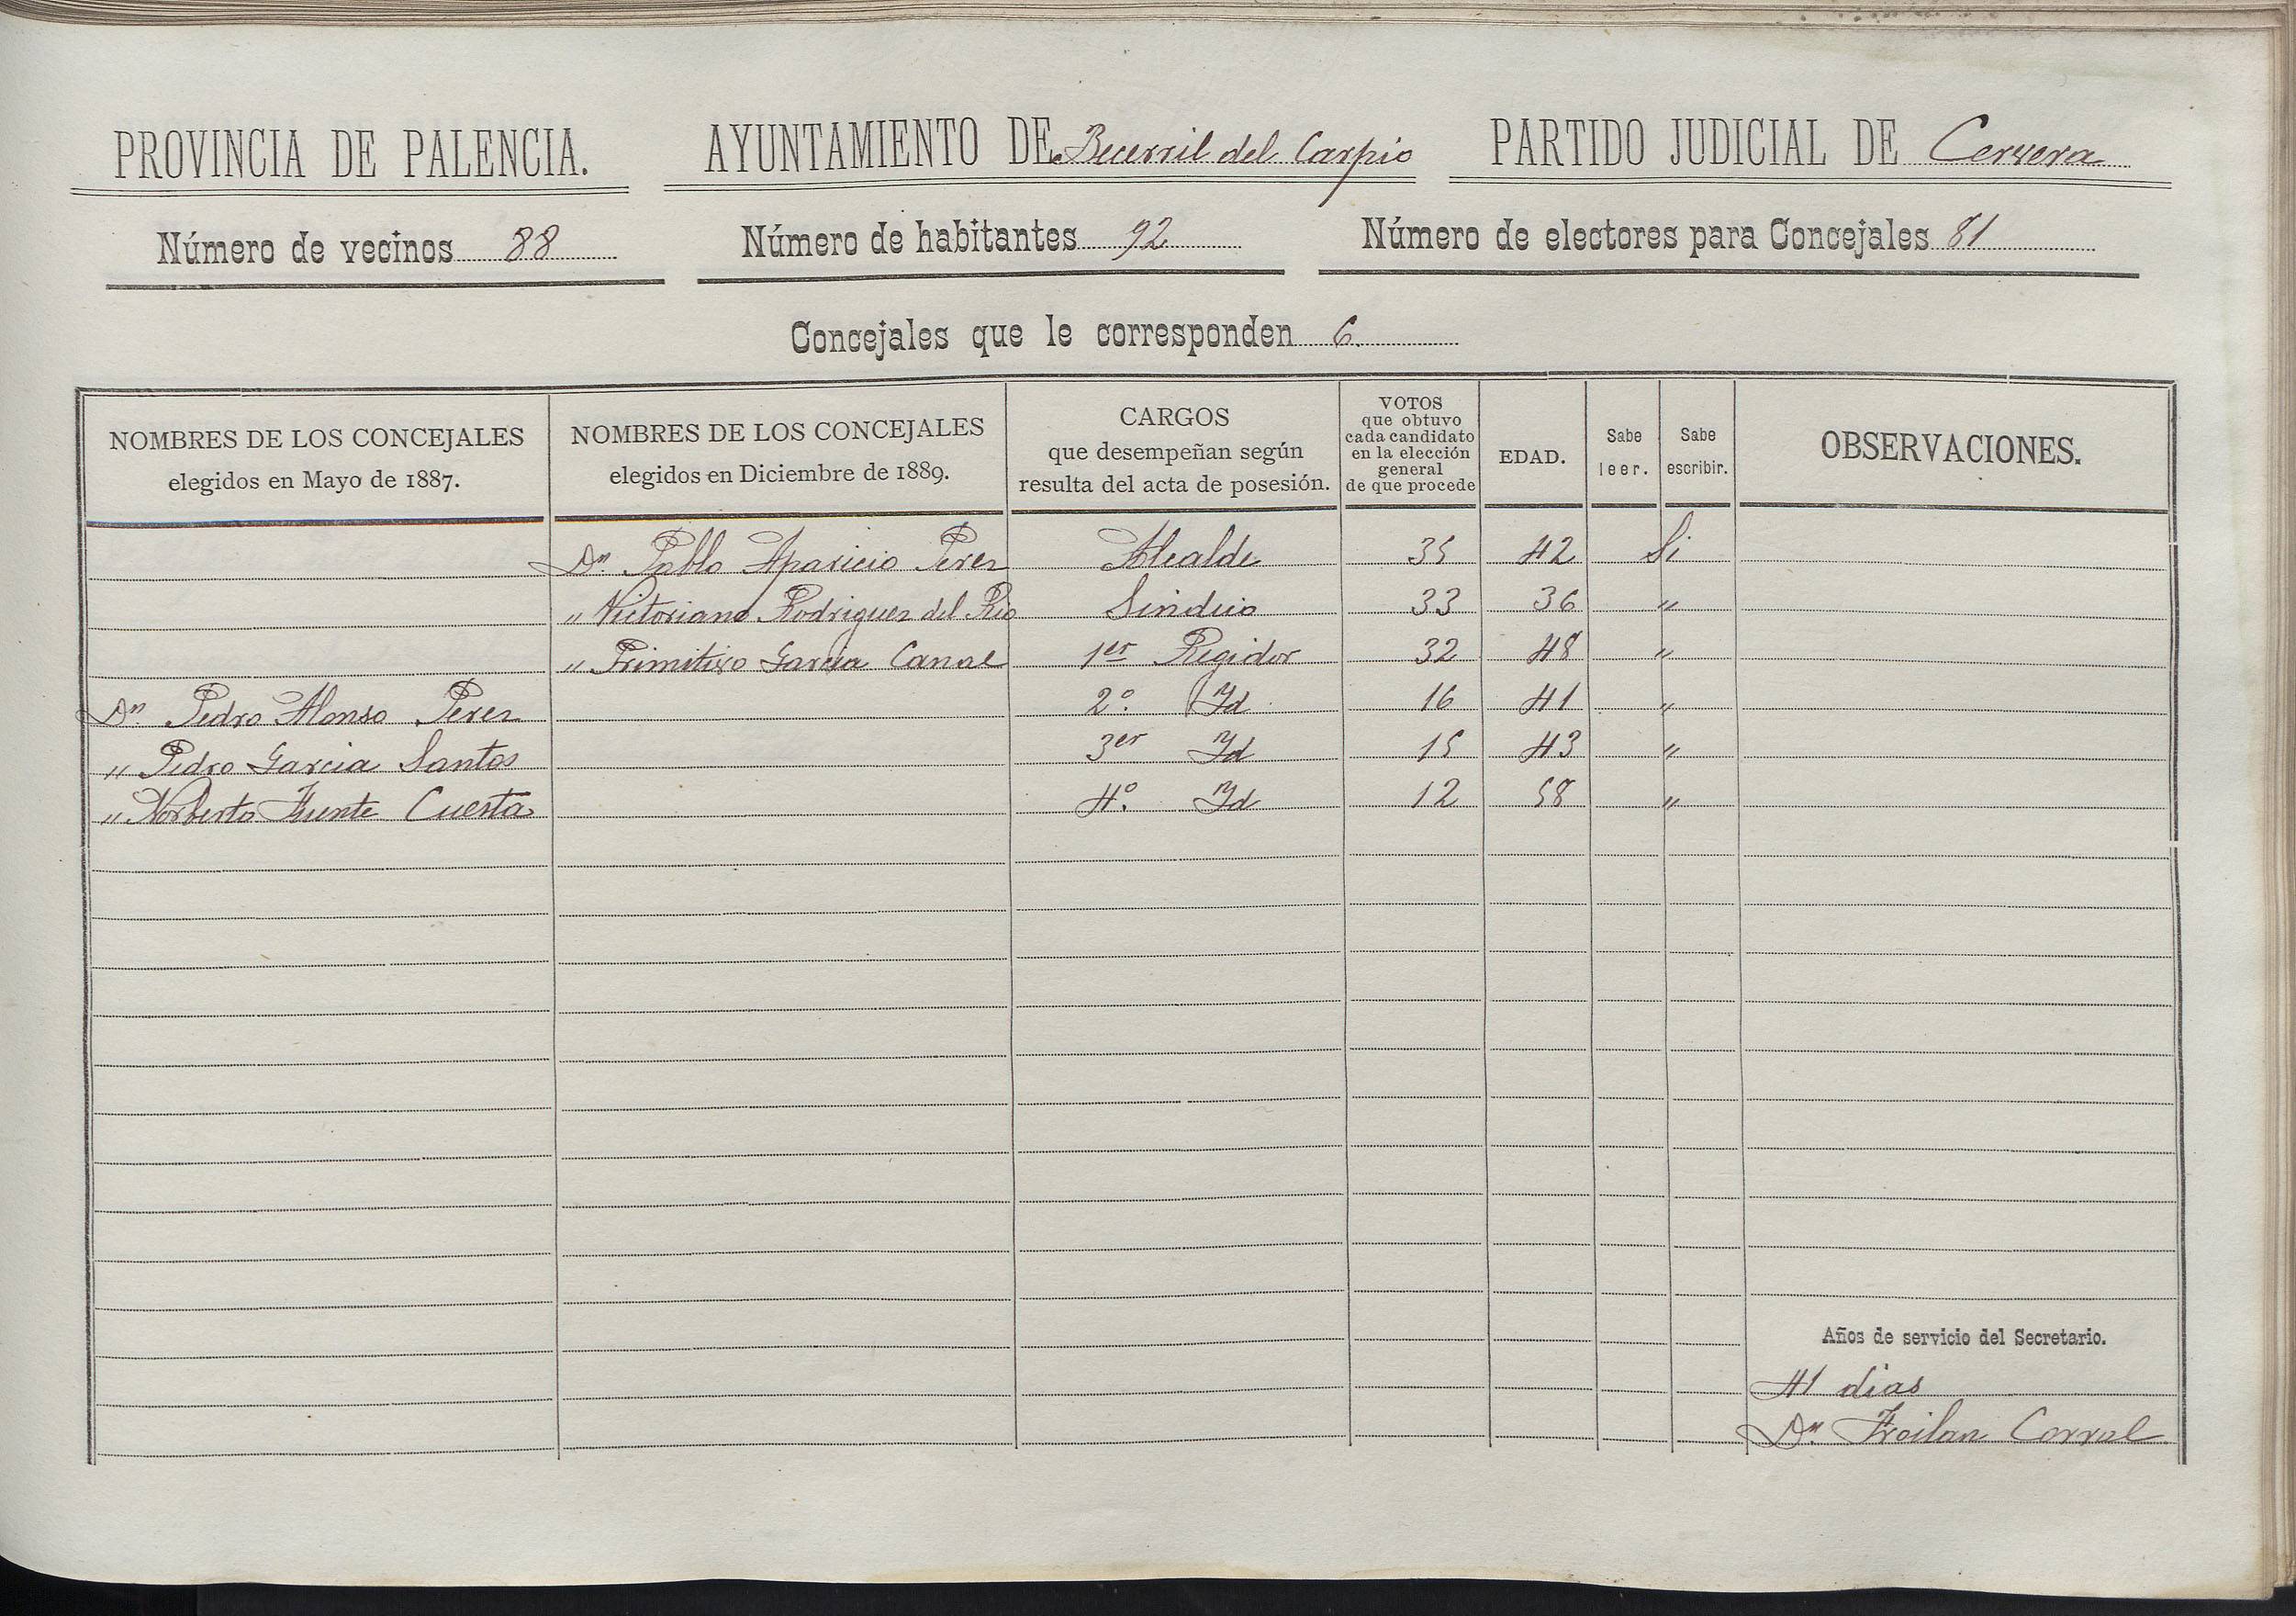 PROVINCIA DE PALENCIA. AYUNTAMIENTO DE Becerril del Carpio PARTIDO JUDICIAL DE Cervera
Número de vecinos 88 Número de habitantes 92 Número de electores para Concejales 81
Concejales que le corresponden 6.
NOMBRES DE LOS CONCEJALES
elegidos en Mayo de 1887.
NOMBRES DE LOS CONCEJALES
elegidos en Diciembre de 1889.
CARGOS
que desempeñan según
resulta del acta de posesión.
VOTOS
que obtuvo
cada candidato
en la elección
general
de que procede
EDAD.
Sabe
leer.
Sabe
escribir.
OBSERVACIONES.
Dn. Pablo Aparicio Perez Alcalde 35 42 Si
" Victoriano Rodriguez del Rio Sindico 33 36 "
" Primitivo Garcia Canal 1er Regidor 32 48 "
Dn. Pedro Alonso Perez 2º. Id 16 41 "
" Pedro Garcia Santos 3er Id 15 43 "
" Norberto Fuente Cuesta 4º. Id 12 58 "
Años de servicio del Secretario.
41 dias
Dn. Froilan Corral